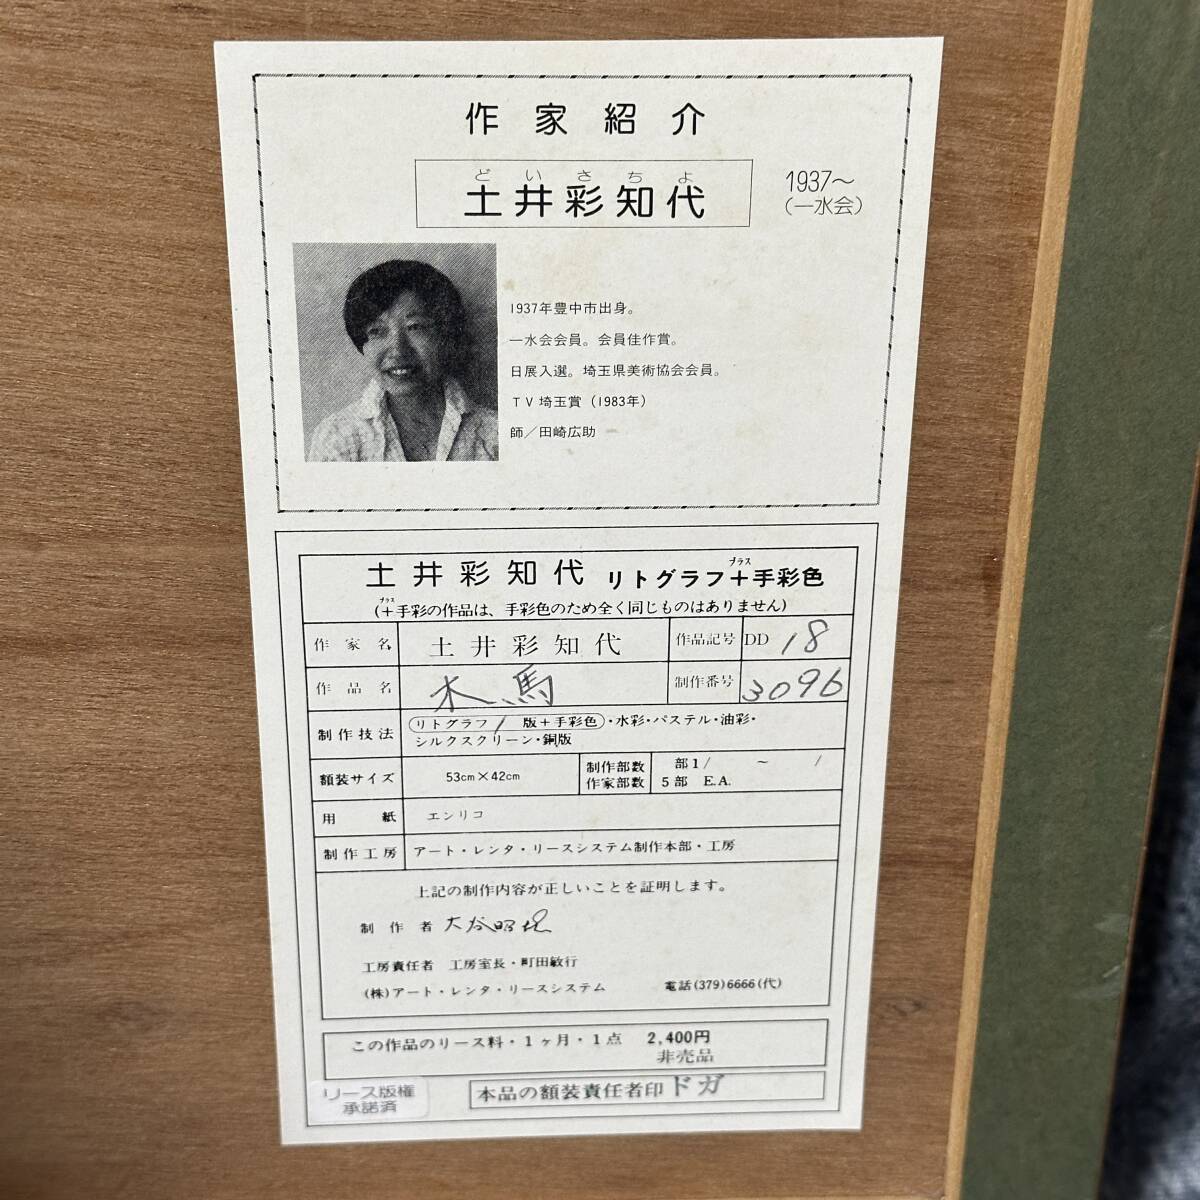 作家紹介
どいさちよ
土井彩知代
1937〜
(一水会)
1937年豊中市出身。
一水会会員。会員佳作賞。
日展入選。埼玉県美術協会会員。
TV埼玉賞(1983年)
師/田崎広助
土井彩知代 リトグラフ+手彩色
プラス
(+手彩の作品は、手彩色のため全く同じものはありません)
プラス
作家名 土井彩知代 作品記号 DD 18
作品名 木馬 制作番号 3096
制作技法 リトグラフ/版+手彩色・水彩・パステル・油彩・
シルクスクリーン・銅版
額装サイズ 53cm×42cm 制作部数 部1/ 〜 /
作家部数 5部 E.A.
用紙 エンリコ
制作工房 アート・レンタ・リースシステム制作本部・工房
上記の制作内容が正しいことを証明します。
制作者
工房責任者 工房室長・町田敏行
(株)アート・レンタ・リースシステム 電話(379)6666(代)
この作品のリース料・1ヶ月・1点 2,400円
非売品
リース版権
承諾済
本品の額装責任者印 ドガ